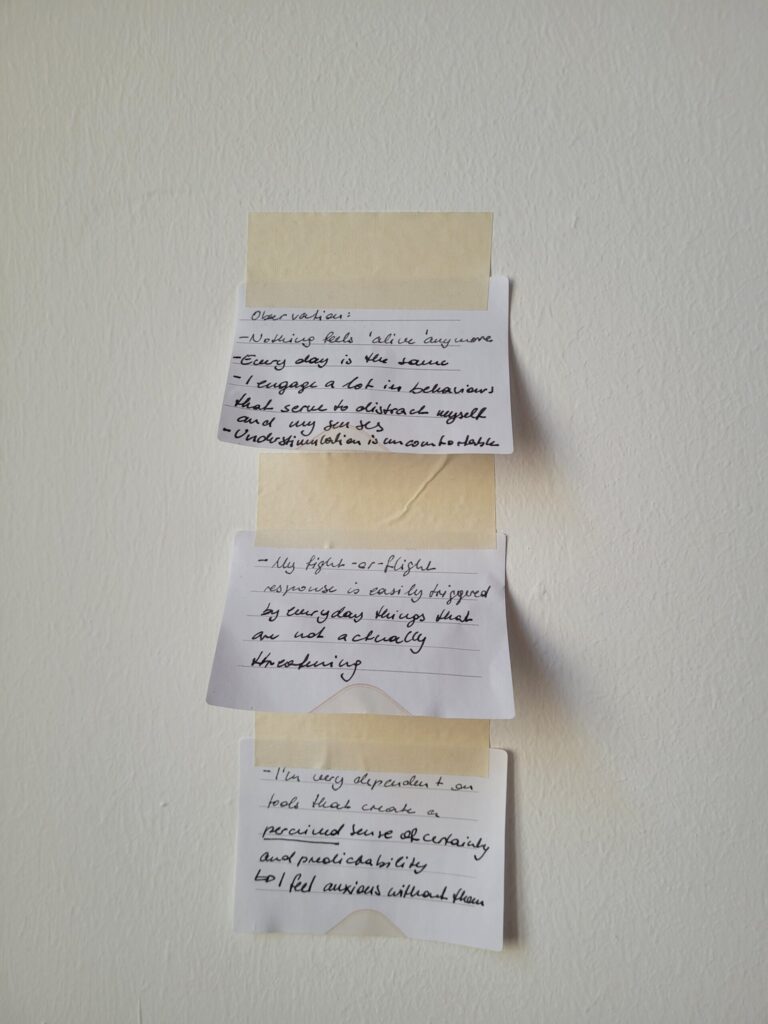 Observation:
- Nothing feels 'alive' anymore
- Every day is the same
- I engage a lot in behaviours
that serve to distract myself
and my senses
- Understimulation is uncomfortable
- My fight-or-flight
response is easily triggered
by everyday things that
are not actually
threatening
- I'm very dependent on
tools that create a
perceived sense of certainty
and predictability
↳ I feel anxious without them